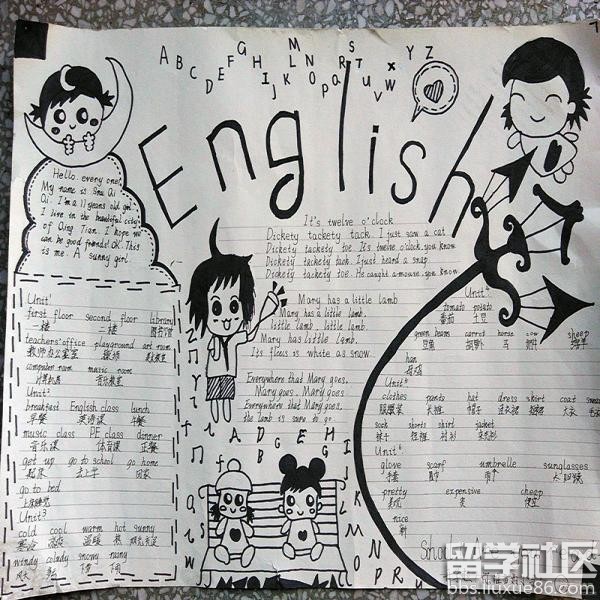 A B C D E F G H I J K L M N O P Q R S T U V W X Y Z
English
Hello. every one!
My name is Shu Qi
Qi. I'm a 11 years old girl.
I live in the beautiful city
of Qing Tian. I hope we
can be good friends! OK. This
is me. A sunny girl.
It's twelve o'clock
Dickety tackety tack. I just saw a cat
Dickety tackety toe. It's twelve o'clock. you know
Dickety tackety tack. I just heard a snap
Dickety tackety toe. He caught a mouse. you know
Mary has a little lamb
Mary has a little lamb.
little lamb, little lamb.
Mary has little lamb.
Its flecus is white as snow.
Everywhere that Mary goes,
Mary goes. Mary goes
Everywhere that Mary goes,
the lamb is sure to go
Unit1
first floor second floor library
一楼 二楼 图书馆
teachers' office playground art room
教师办公室 操场
computer room music room
计算机房 音乐教室
Unit2
breakfast English class lunch
早餐 英语课 午餐
music class PE class dinner
音乐课 体育课 正餐
get up go to school go home
起床 去上学 回家
go to bed
上床睡觉
Unit3
cold cool warm hot sunny
寒冷 温暖 热
windy cloudy snowy rainy
下雪 下雨
Unit4
tomato potato
番茄 土豆
green beans carrot horse cow sheep
豆角 胡萝卜 马 奶牛 绵羊
hen
母鸡
Unit5
clothes pants hat dress skirt coat sweater
长裤 帽子 连衣裙 短裙 大衣
sock shorts shirt jacket
袜子 短裤 衬衫
Unit6
glove scarf umbrella sunglasses
手套 围巾 雨伞 太阳镜
pretty expensive cheap
美观 贵 便宜
nice
留学社区
bbs.liuxue86.com